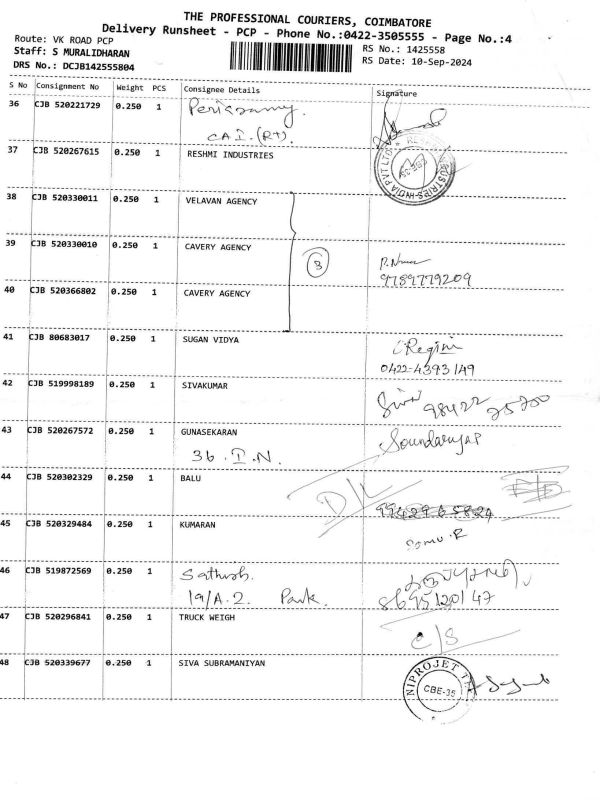 THE PROFESSIONAL COURIERS, COIMBATORE
Delivery Runsheet - PCP - Phone No.:0422-3505555 - Page No.:4
Route: VK ROAD PCP
RS No.: 1425558
Staff: S MURALIDHARAN
RS Date: 10-Sep-2024
DRS No.: DCJB142555804
S No Consignment No Weight PCS Consignee Details Signature
36 CJB 520221729 0.250 1 Periasamy.
CAI. (R+).
37 CJB 520267615 0.250 1 RESHMI INDUSTRIES
38 CJB 520330011 0.250 1 VELAVAN AGENCY
39 CJB 520330010 0.250 1 CAVERY AGENCY
3
9789779209
40 CJB 520366802 0.250 1 CAVERY AGENCY
41 CJB 80683017 0.250 1 SUGAN VIDYA
Regini
0422-4393149
42 CJB 519998189 0.250 1 SIVAKUMAR
Siva 98422 25700
43 CJB 520267572 0.250 1 GUNASEKARAN
36. I.N.
44 CJB 520302329 0.250 1 BALU
D/L
9942965824
45 CJB 520329484 0.250 1 KUMARAN
46 CJB 519872569 0.250 1 Sathish.
19/A.2. Park.
8695120147
47 CJB 520296841 0.250 1 TRUCK WEIGH
C/S
48 CJB 520339677 0.250 1 SIVA SUBRAMANIYAN
NIPROJET
CBE-35